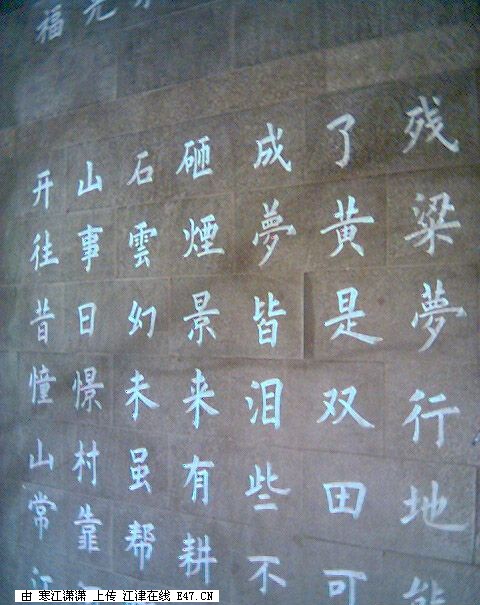 福元
开山石砸成了残
往事雲煙夢黄粱
昔日幻景皆是夢
憧憬未来泪双行
山村虽有些田地
常靠帮耕不可能
由 寒江潇潇 上传 江津在线 E47.CN